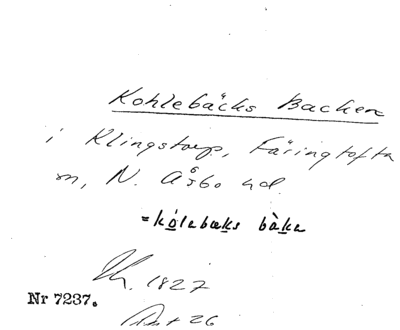 Kohlebäcks Backen
i Klingstorp, Färingtofta
sn, N. Åsbo hd.
=kólabæks bàka
1827
Nr 7237.
26